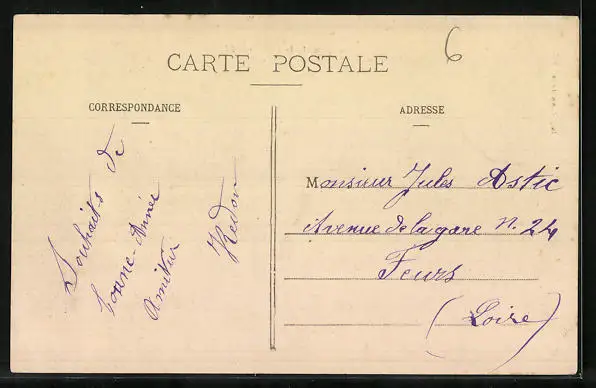 6
CARTE POSTALE
CORRESPONDANCE
ADRESSE
Souhaits de
bonne Année
Amitiés
Redon
Monsieur Jules Astic
Avenue de la gare N. 24
Feurs
(Loire)